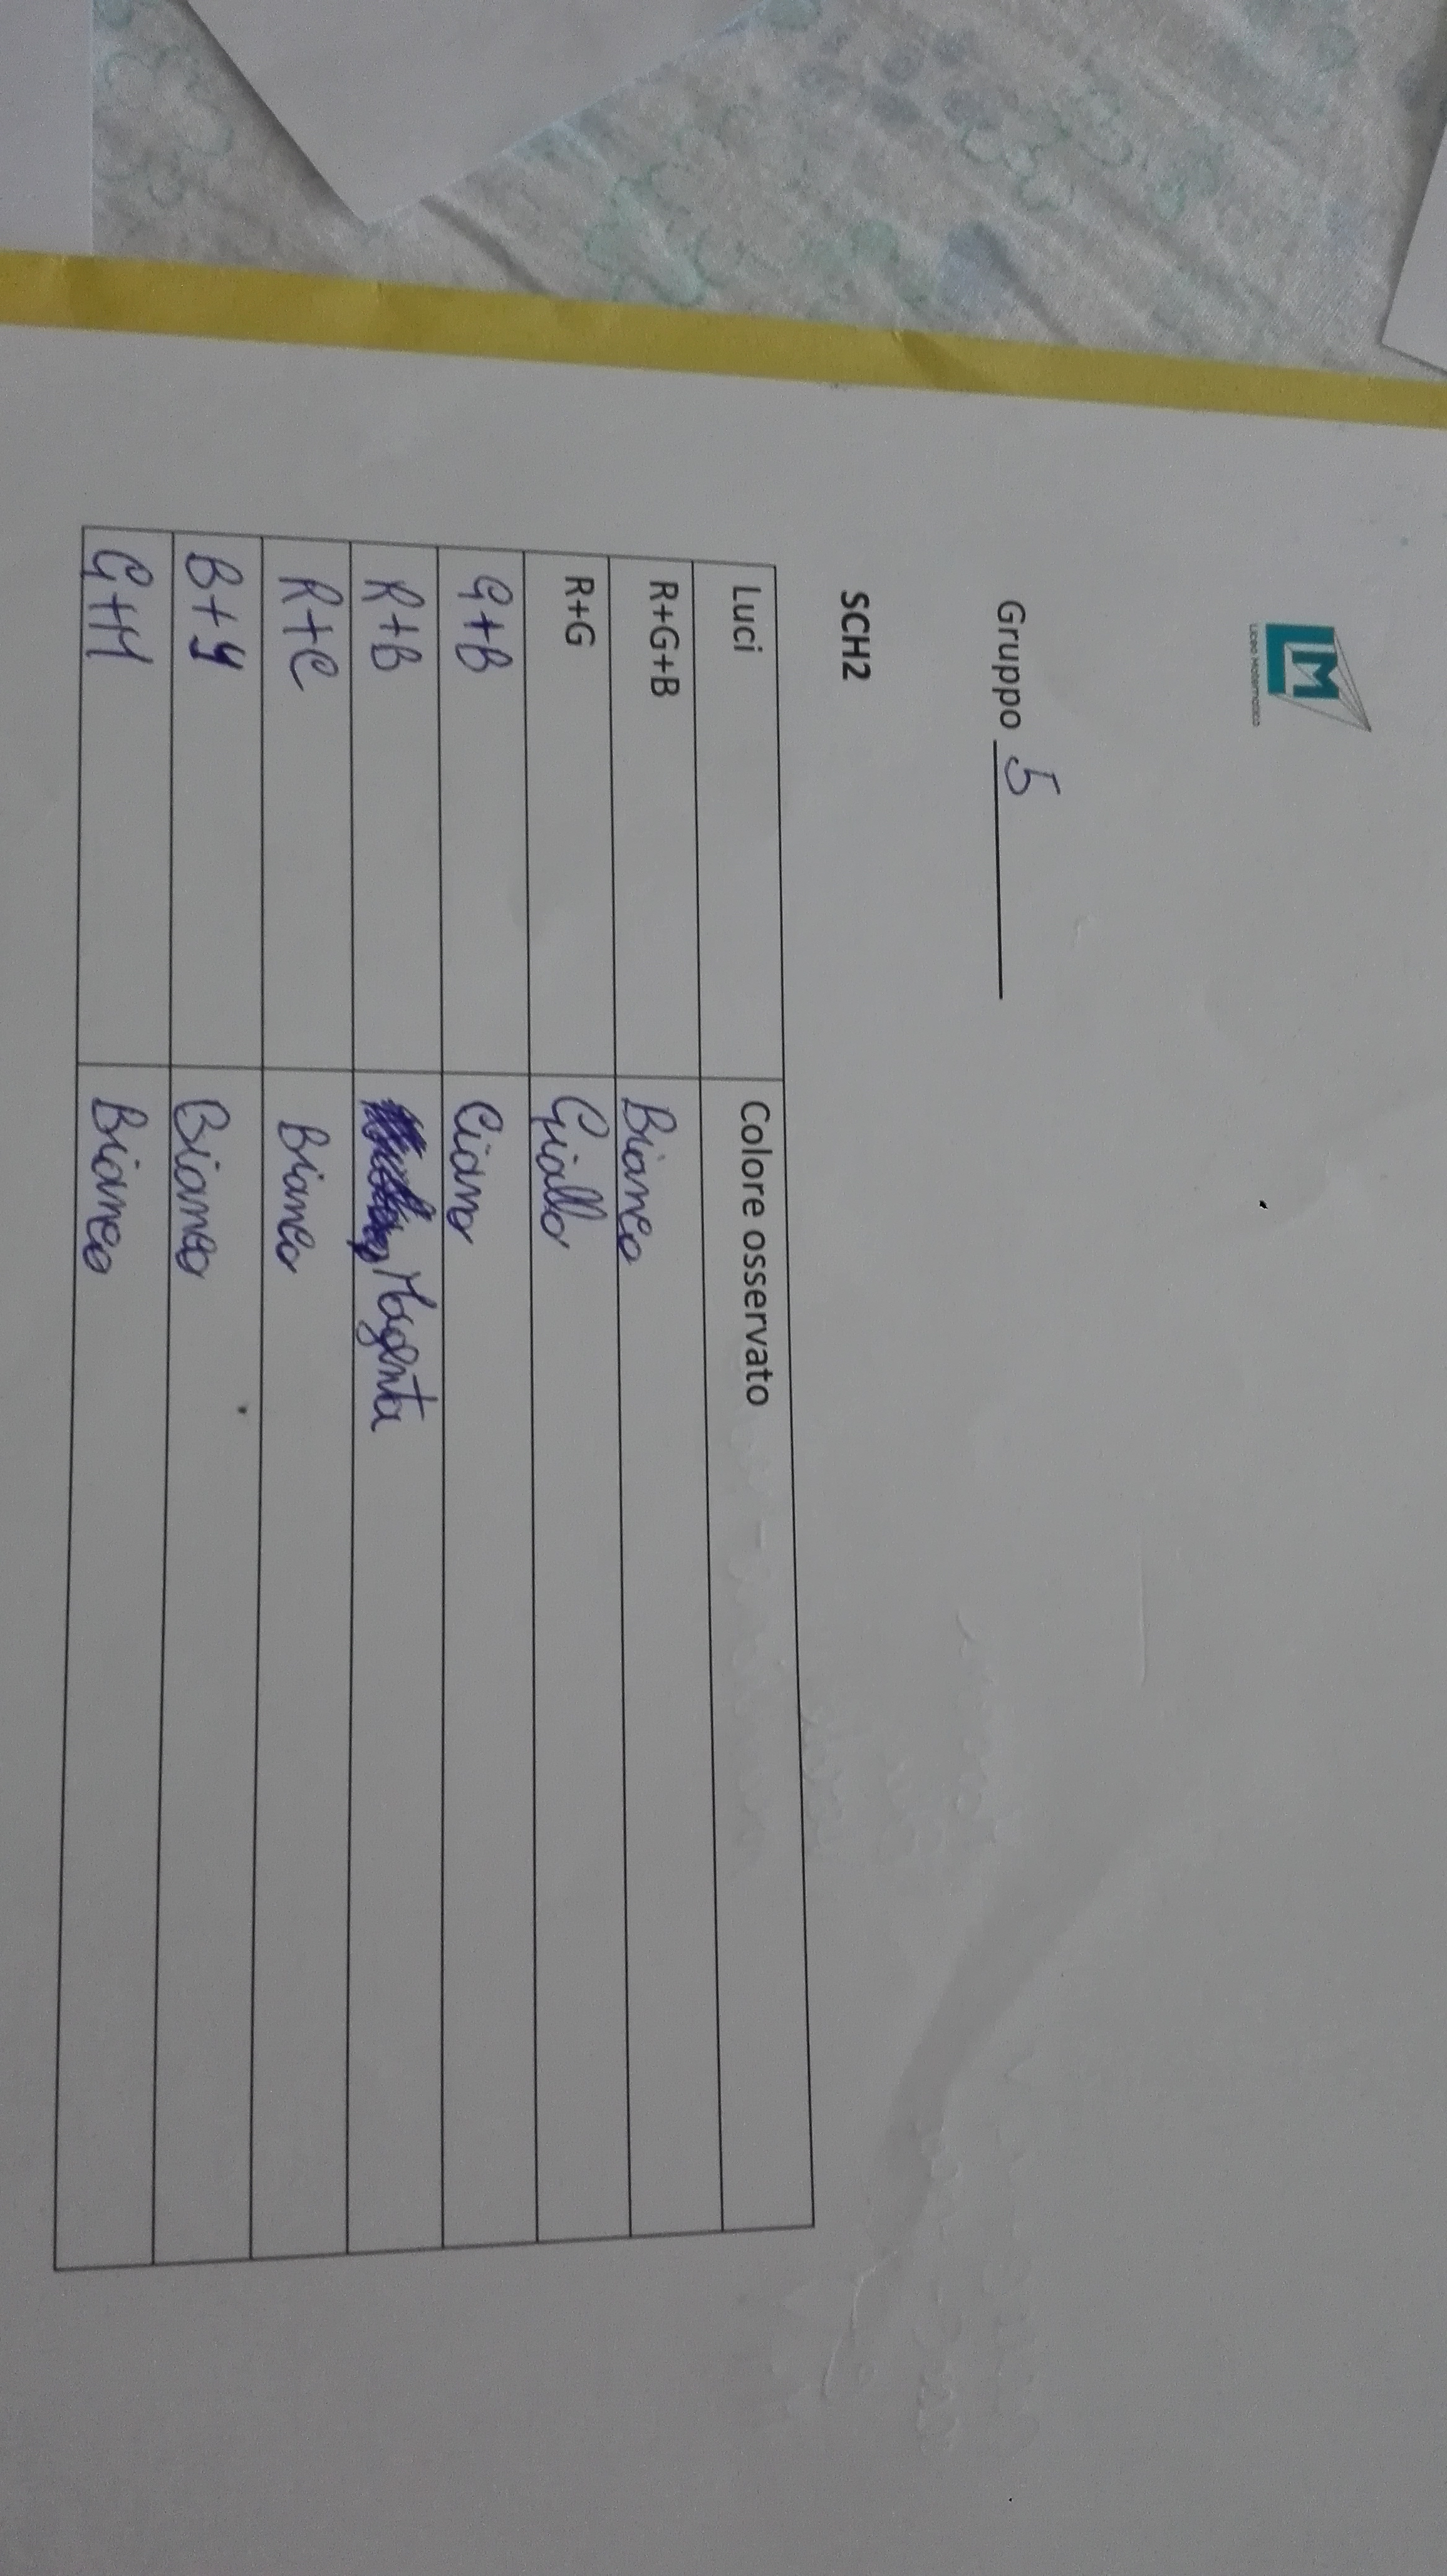 LM
Liceo Matematico
Gruppo 5
SCH2
Luci Colore osservato
R+G+B Bianco
R+G Giallo
G+B Ciano
R+B Magenta
R+C Bianco
B+Y Bianco
G+M Bianco